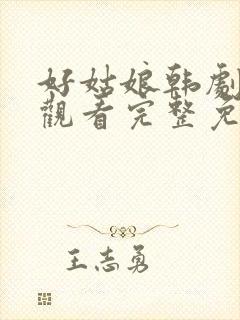 好姑娘韩劇
觀看完整免
王志勇